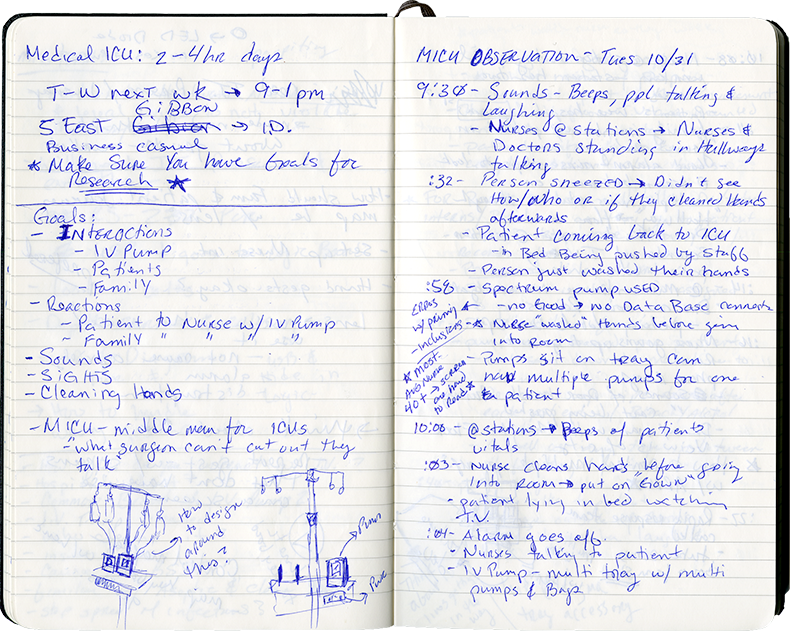 Medical ICU: 2-4hr days
T-W next wk → 9-1pm
GiBBON
5 East → ID.
Business casual
* Make Sure You have Goals for
Research *
Goals:
- Interactions
- IV Pump
- Patients
- Family
- Reactions
- Patient to Nurse w/ IV Pump
- Family " " " "
- Sounds
- SiGHTS
- Cleaning Hands
- MICU - middle man for ICUs
- "What surgeon can't cut out they
talk"
How
to design
around
this?
Pump
MICU OBSERVATION - Tues 10/31
9:30 - Sounds - Beeps, ppl talking &
Laughing
- Nurses @ stations → Nurses &
Doctors standing in Hallways
talking
:32 - Person sneezed → Didn't see
How/who or if they cleaned Hands
afterwards
- Patient coming back to ICU
- in Bed Being pushed by Staff
- Person just washed their hands
:58 - Spectrum pump USED
- no Good → no Data Base
- * Nurse "washed" Hands before going
into Room
- Pumps sit on tray can
multiple pumps for one
patient
* most
40+ → screen
to Read *
10:00 - @ stations → Beeps of patients
vitals
:03 - Nurse cleans hands before going
Into Room → put on "Gown"
- patient lying in bed watching
T.V.
:04 - Alarm goes off.
- Nurses talking to patient
- IV Pump - multi tray w/ multi
pumps & Bags